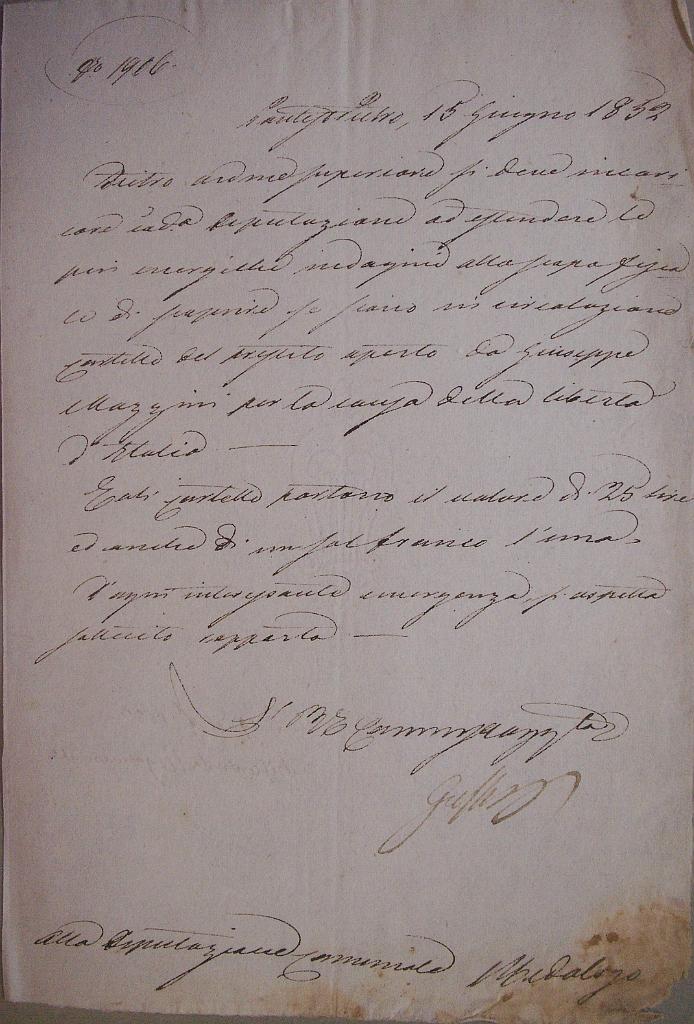 N° 1906
Ponte S. Pietro, 15 Giugno 1852
Dietro ordine superiore si deve incari-
care cod.a Deputazione ad estendere le
più energiche indagini allo scopo
di scoprire se siano in circolazione
cartelle del prestito aperto da Giuseppe
Mazzini per la causa della libertà
d'Italia —
Tali cartelle portano il valore di 25 lire
ed anche di un sol franco l'una.
D'ogni interessante emergenza si aspetta
sollecito rapporto —
Alla Deputazione Comunale Medolago